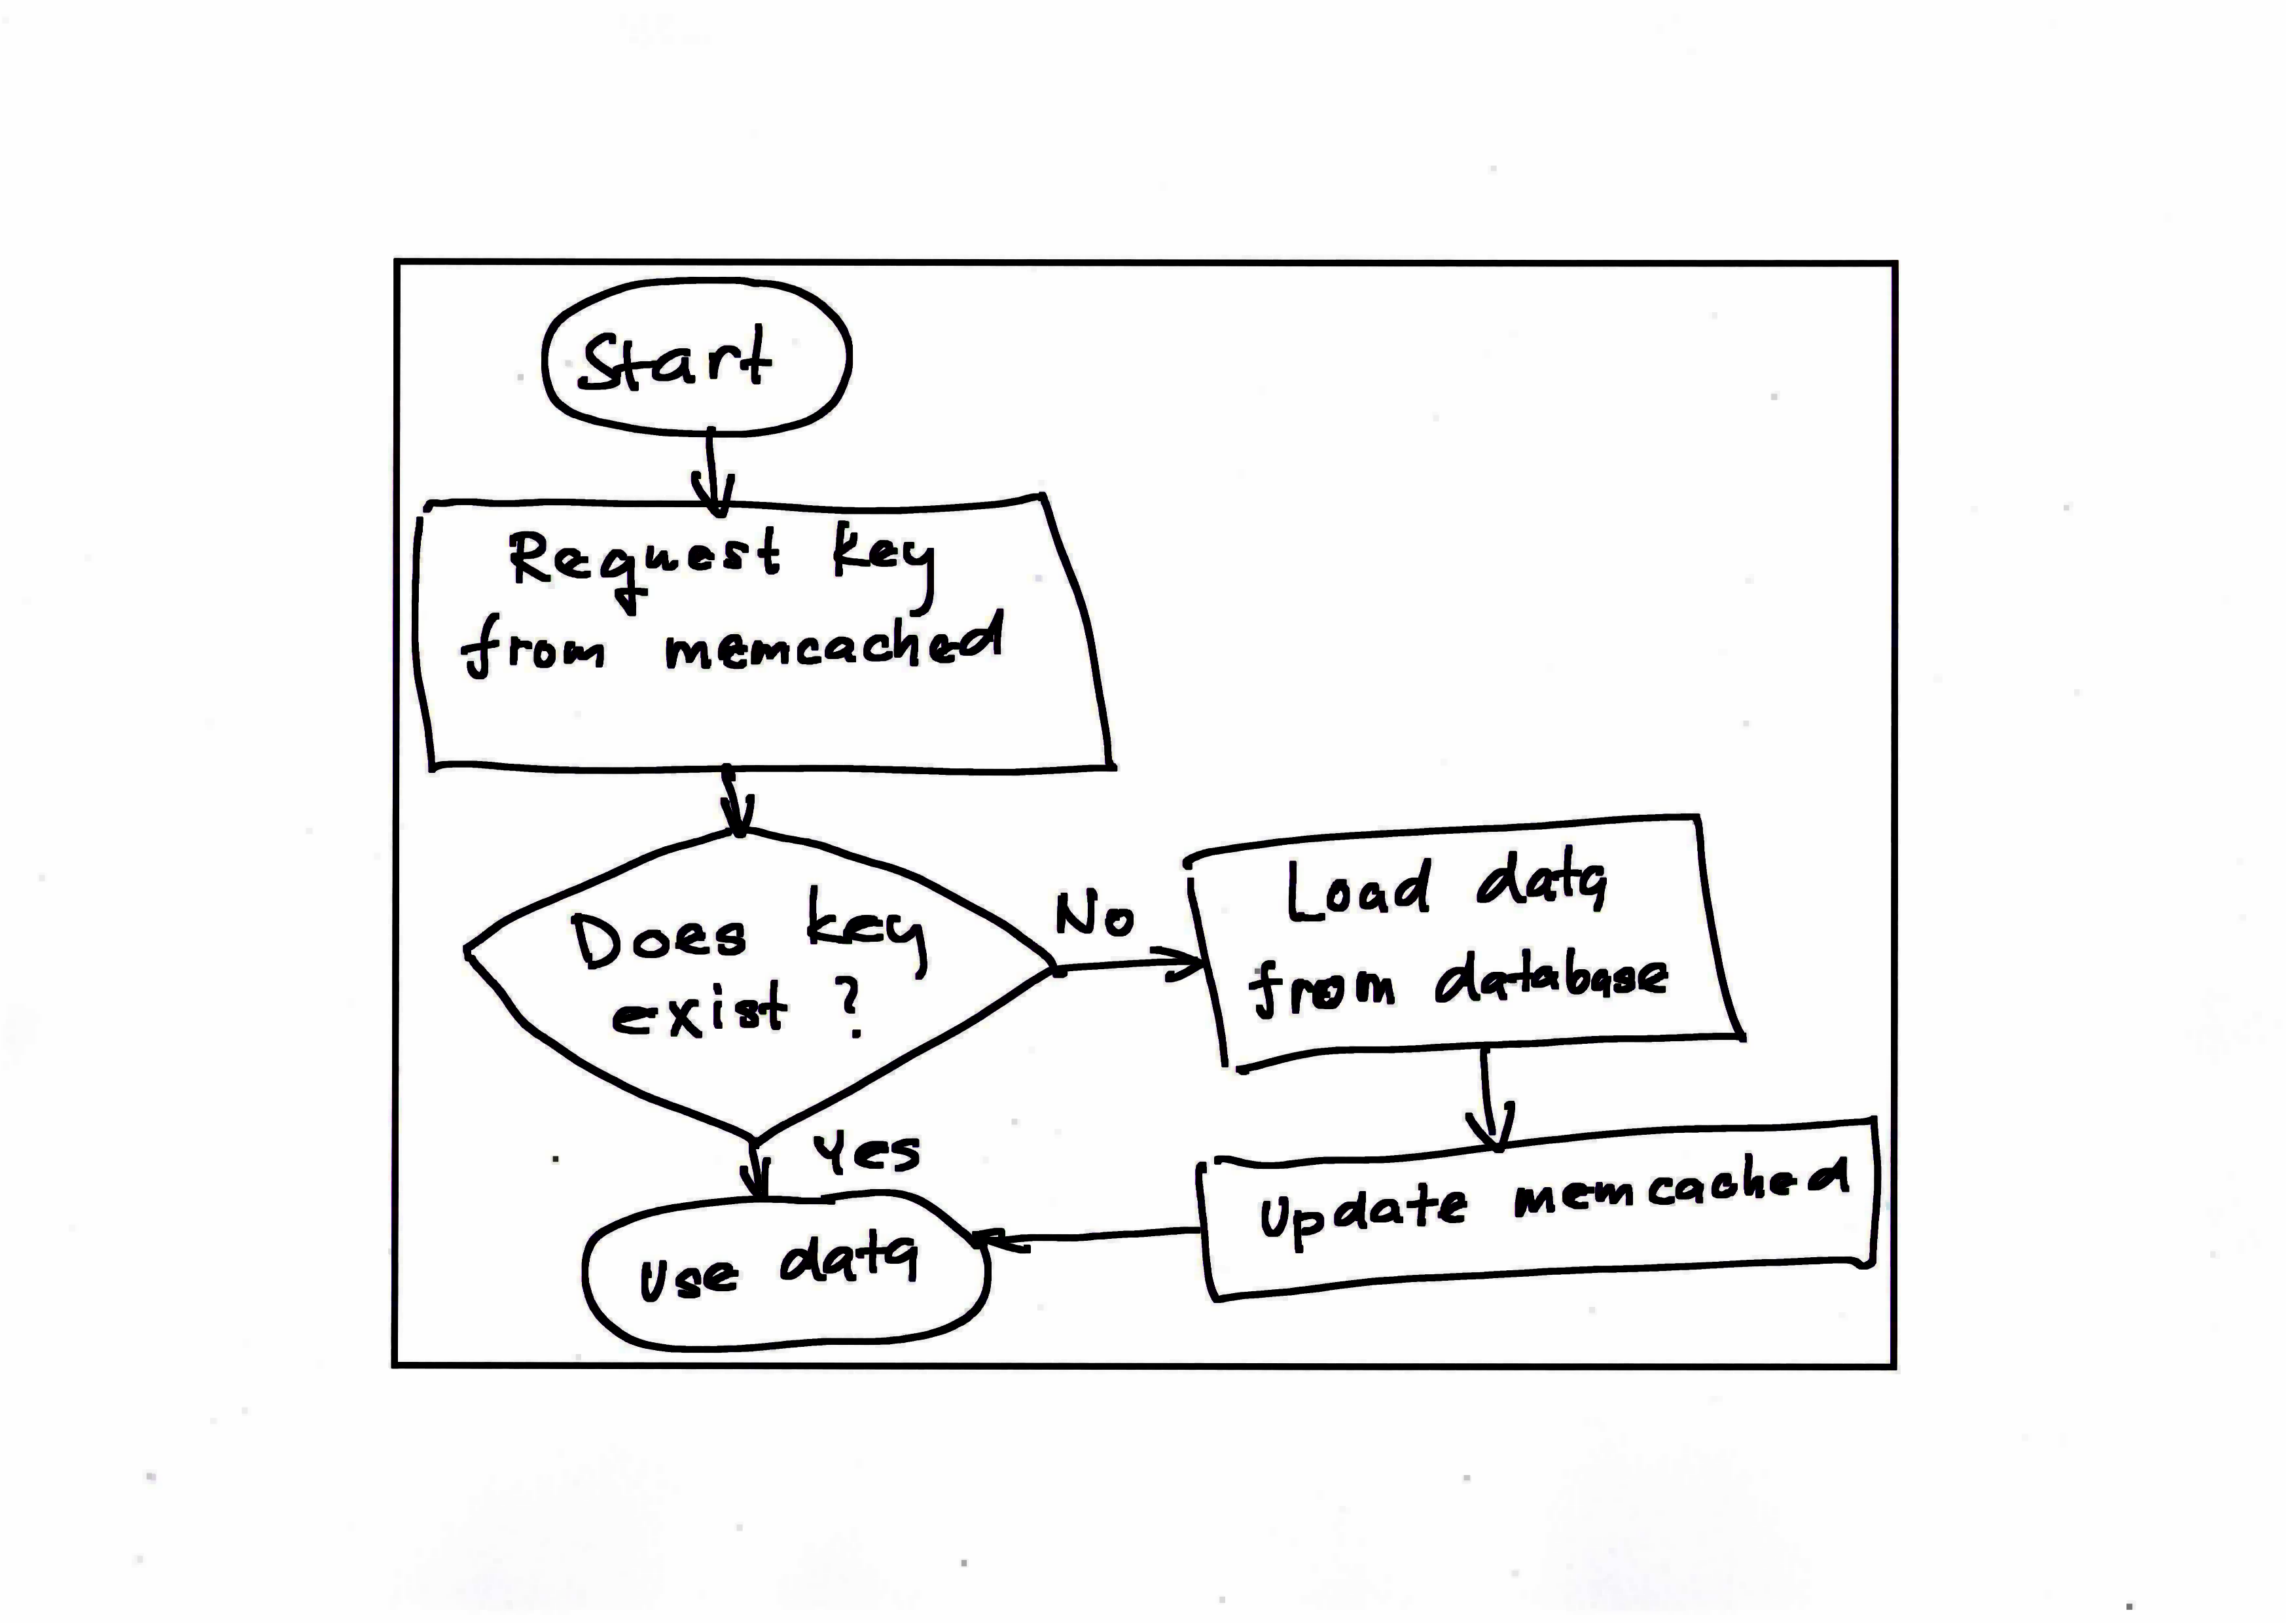 Start
Request key
from memcached
Does key
exist ?
No
Load data
from database
Yes
Update memcached
Use data